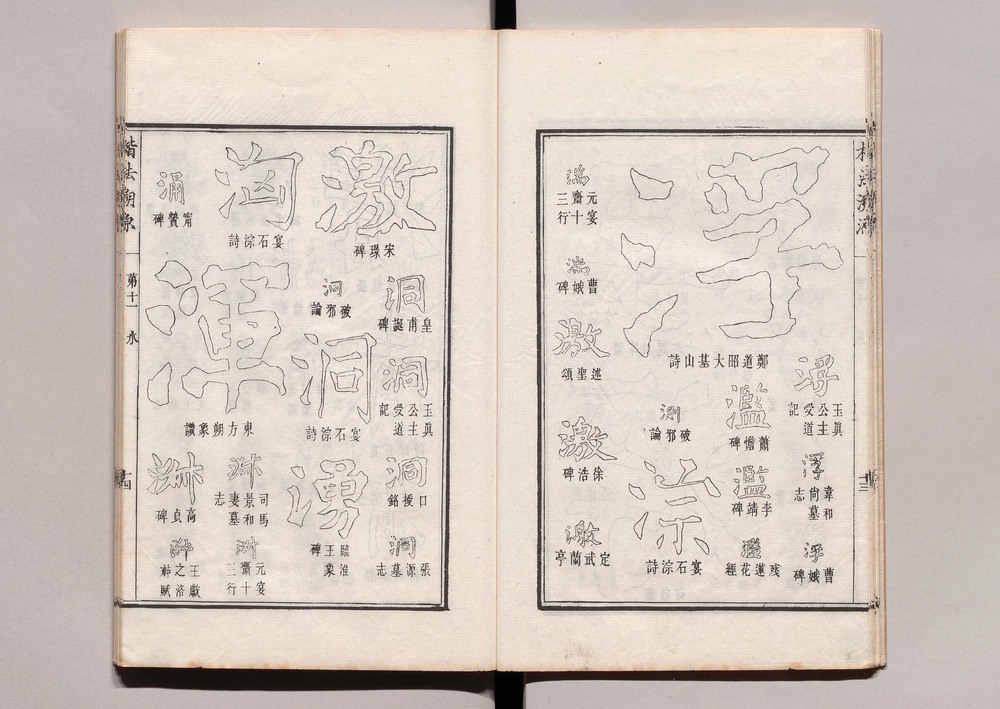 浮
鄭道昭大基山詩
浮
玉眞公主受道記
浮
韋和尙墓志
浮
曹娥碑
濫
蕭憺碑
濫
李靖碑
濫
殘蓮花經
測
破邪論
淙
宴石淙詩
湍
元宴齋三十行
湍
曹娥碑
激
述聖頌
激
徐浩碑
激
定武蘭亭
激
宋璟碑
洞
皇甫誕碑
洞
玉眞公主受道記
洞
口援銘
洞
張源墓志
洶
宴石淙詩
涌
甯贊碑
洞
破邪論
洞
宴石淙詩
湧
臨淮王象碑
渾
東方朔象讚
淵
司馬景和妻墓志
淵
高貞碑
淵
元宴齋三十行
淵
王獻之洛神賦
楷法溯原
第十一
水
十四